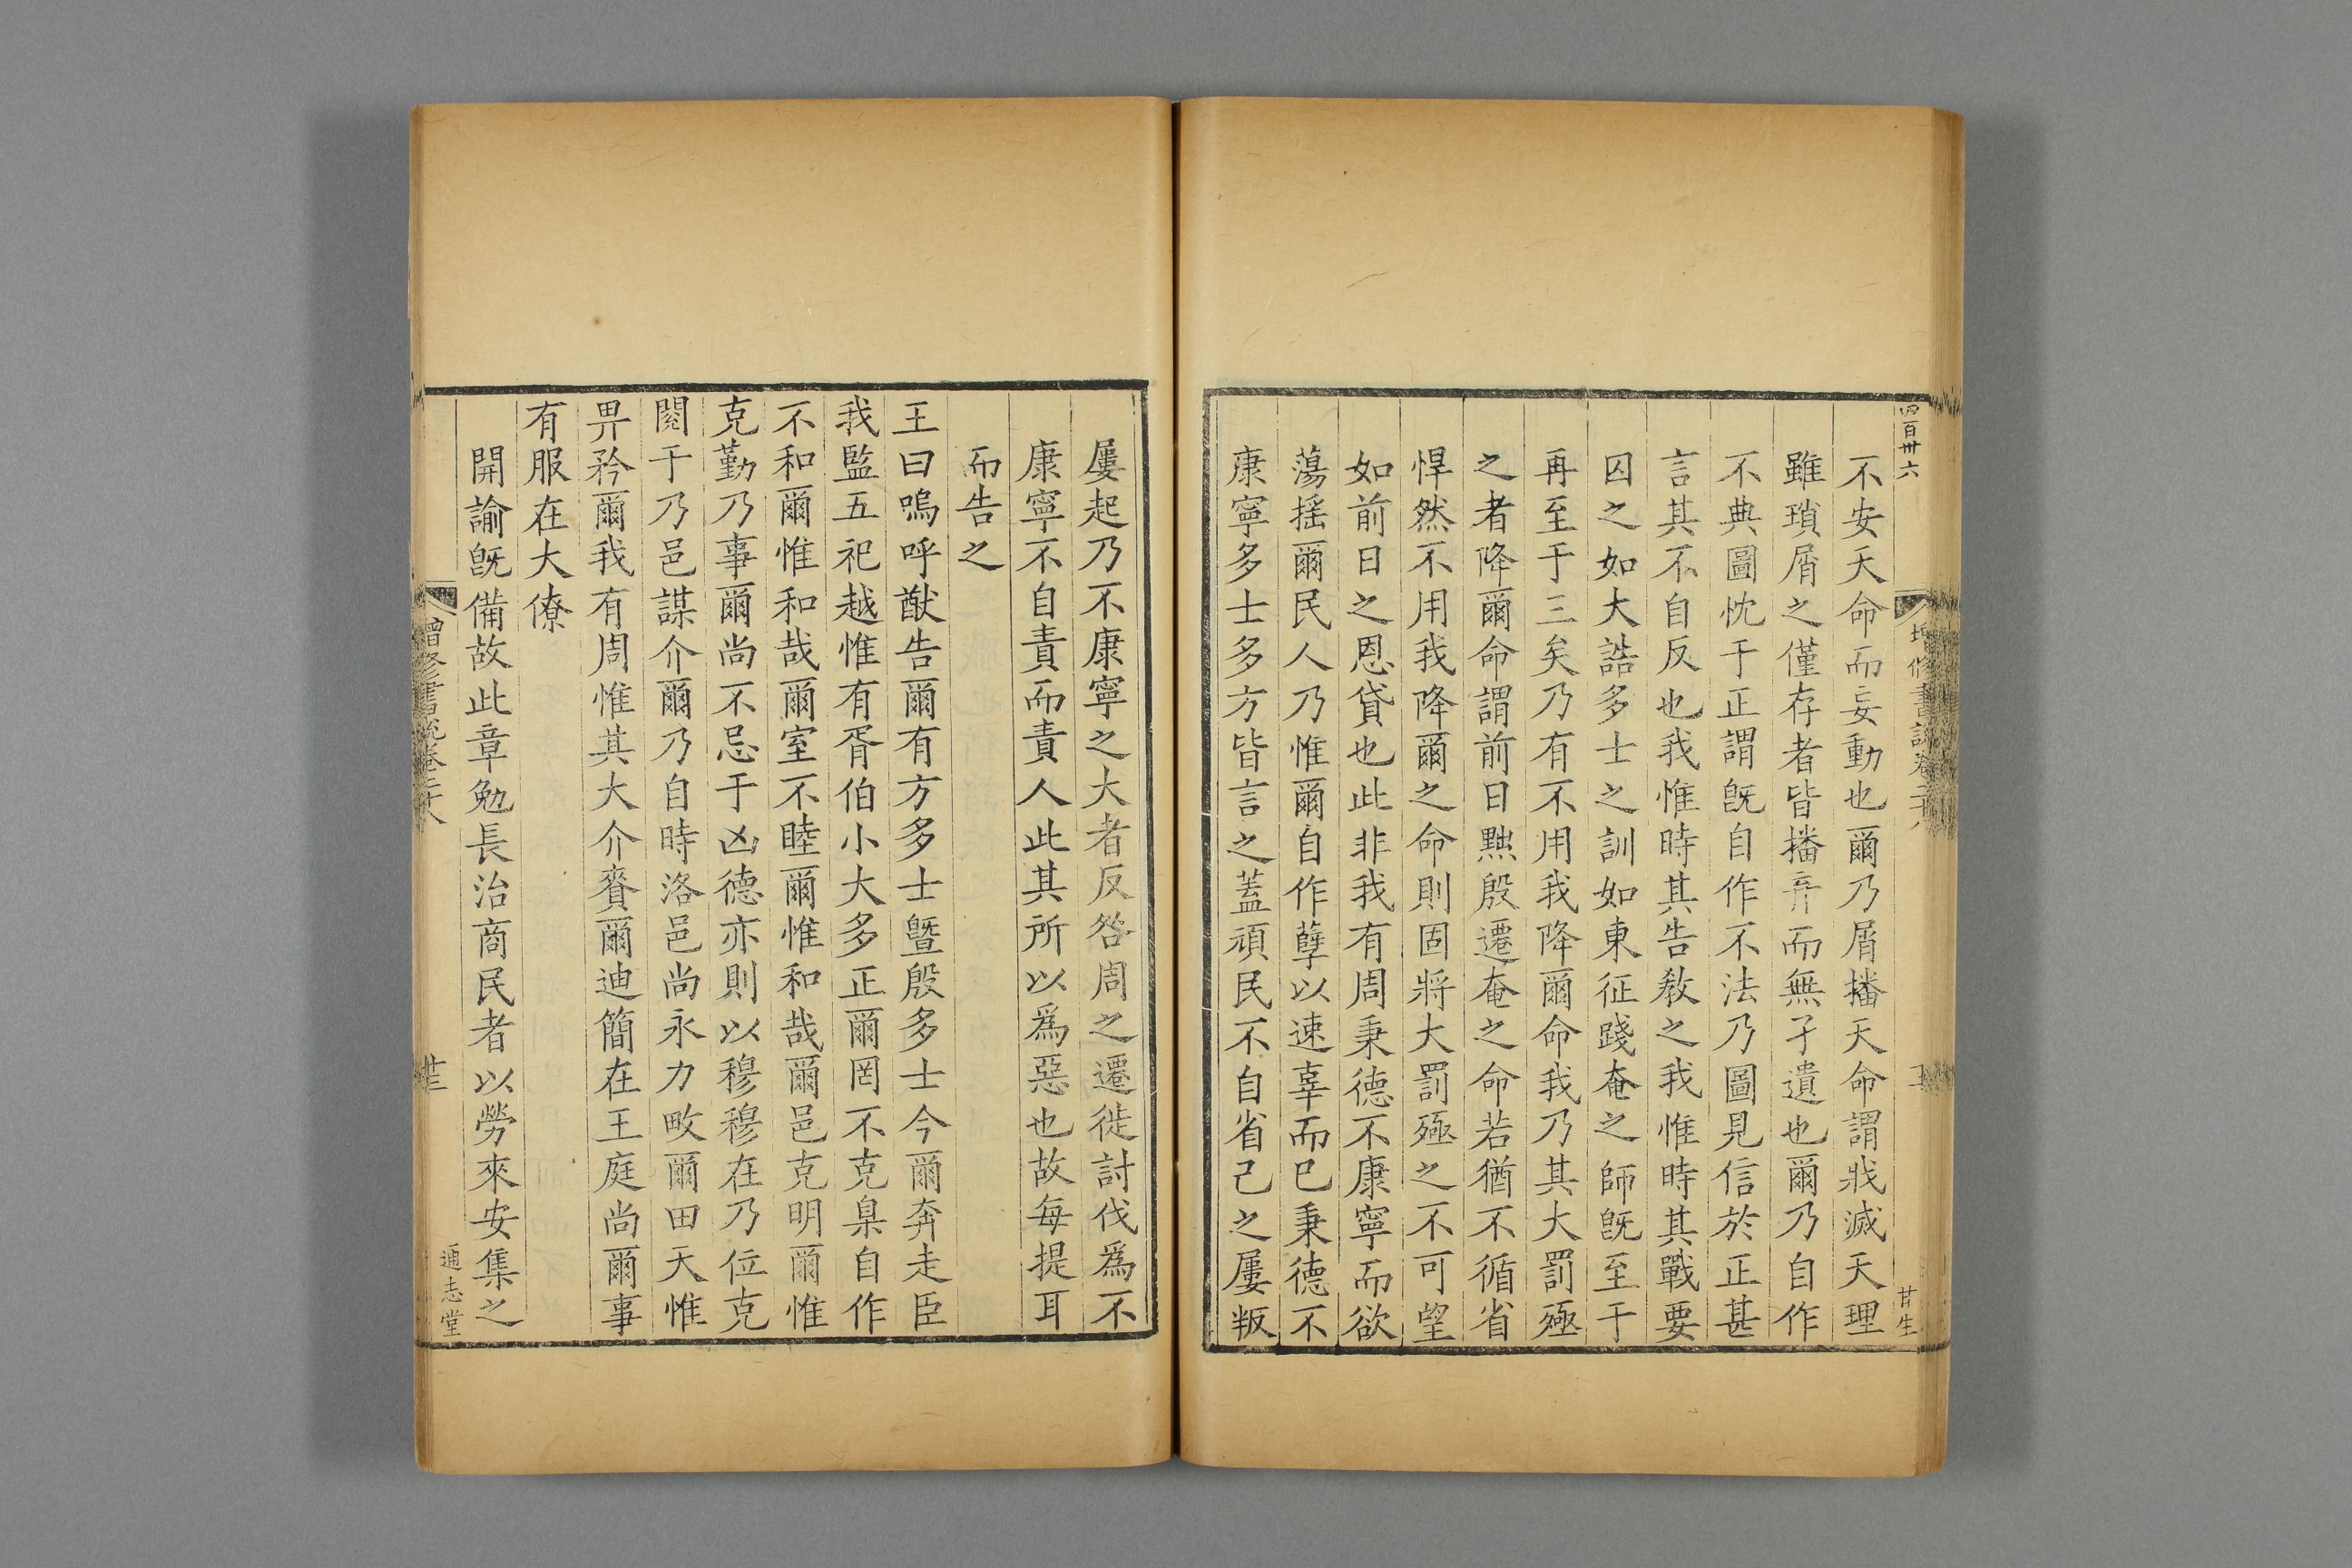 四百卅六
甘生
不安天命而妄動也爾乃屑播天命謂戕滅天理
雖瑣屑之僅存者皆播弃而無孑遺也爾乃自作
不典圖忱于正謂旣自作不法乃圖見信於正甚
言其不自反也我惟時其告敎之我惟時其戰要
囚之如大誥多士之訓如東征踐奄之師旣至于
再至于三矣乃有不用我降爾命我乃其大罰殛
之者降爾命謂前日黜殷遷奄之命若猶不循省
悍然不用我降爾之命則固將大罰殛之不可望
如前日之恩貸也此非我有周秉德不康寧而欲
蕩搖爾民人乃惟爾自作孽以速辜而已秉德不
康寧多士多方皆言之蓋頑民不自省己之屢叛
屢起乃不康寧之大者反咎周之遷徙討伐爲不
康寧不自責而責人此其所以爲惡也故每提耳
而告之
王曰嗚呼猷告爾有方多士曁殷多士今爾奔走臣
我監五祀越惟有胥伯小大多正爾罔不克臬自作
不和爾惟和哉爾室不睦爾惟和哉爾邑克明爾惟
克勤乃事爾尚不忌于凶德亦則以穆穆在乃位克
閱于乃邑謀介爾乃自時洛邑尚永力畋爾田天惟
畀矜爾我有周惟其大介賚爾迪簡在王庭尚爾事
有服在大僚
開諭旣備故此章勉長治商民者以勞來安集之
增修書說卷二十八
廿三
通志堂